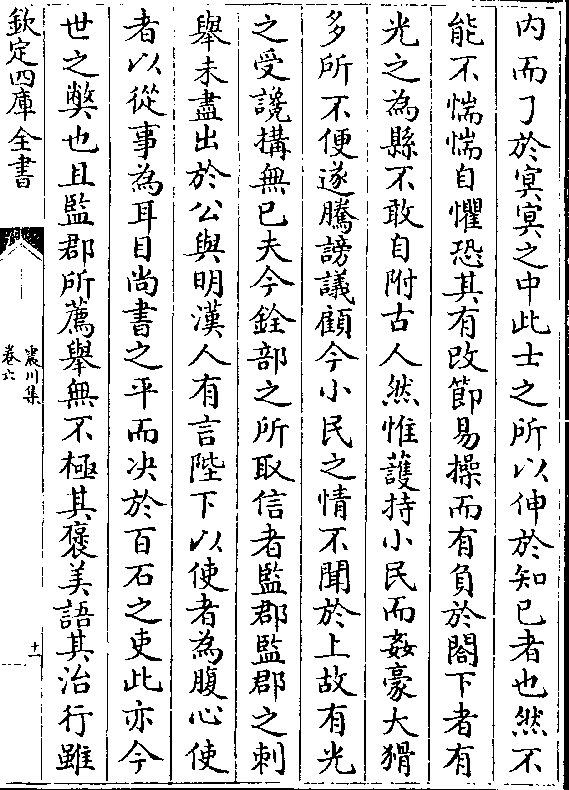 内而了於冥冥之中此士之所以伸於知已者也然不
能不惴惴自懼恐其有改節易操而有負於閣下者有
光之為縣不敢自附古人然惟䕶持小民而姦豪大猾
多所不便遂騰謗議顧今小民之情不聞於上故有光
之受讒構無已夫今銓部之所取信者監郡監郡之刺
舉未盡出於公與明漢人有言陛下以使者為腹心使
者以從事為耳目尚書之平而决於百石之吏此亦今
世之弊也且監郡所薦舉無不極其褒美語其治行雖
欽定四庫全書
震川集
卷六
十一